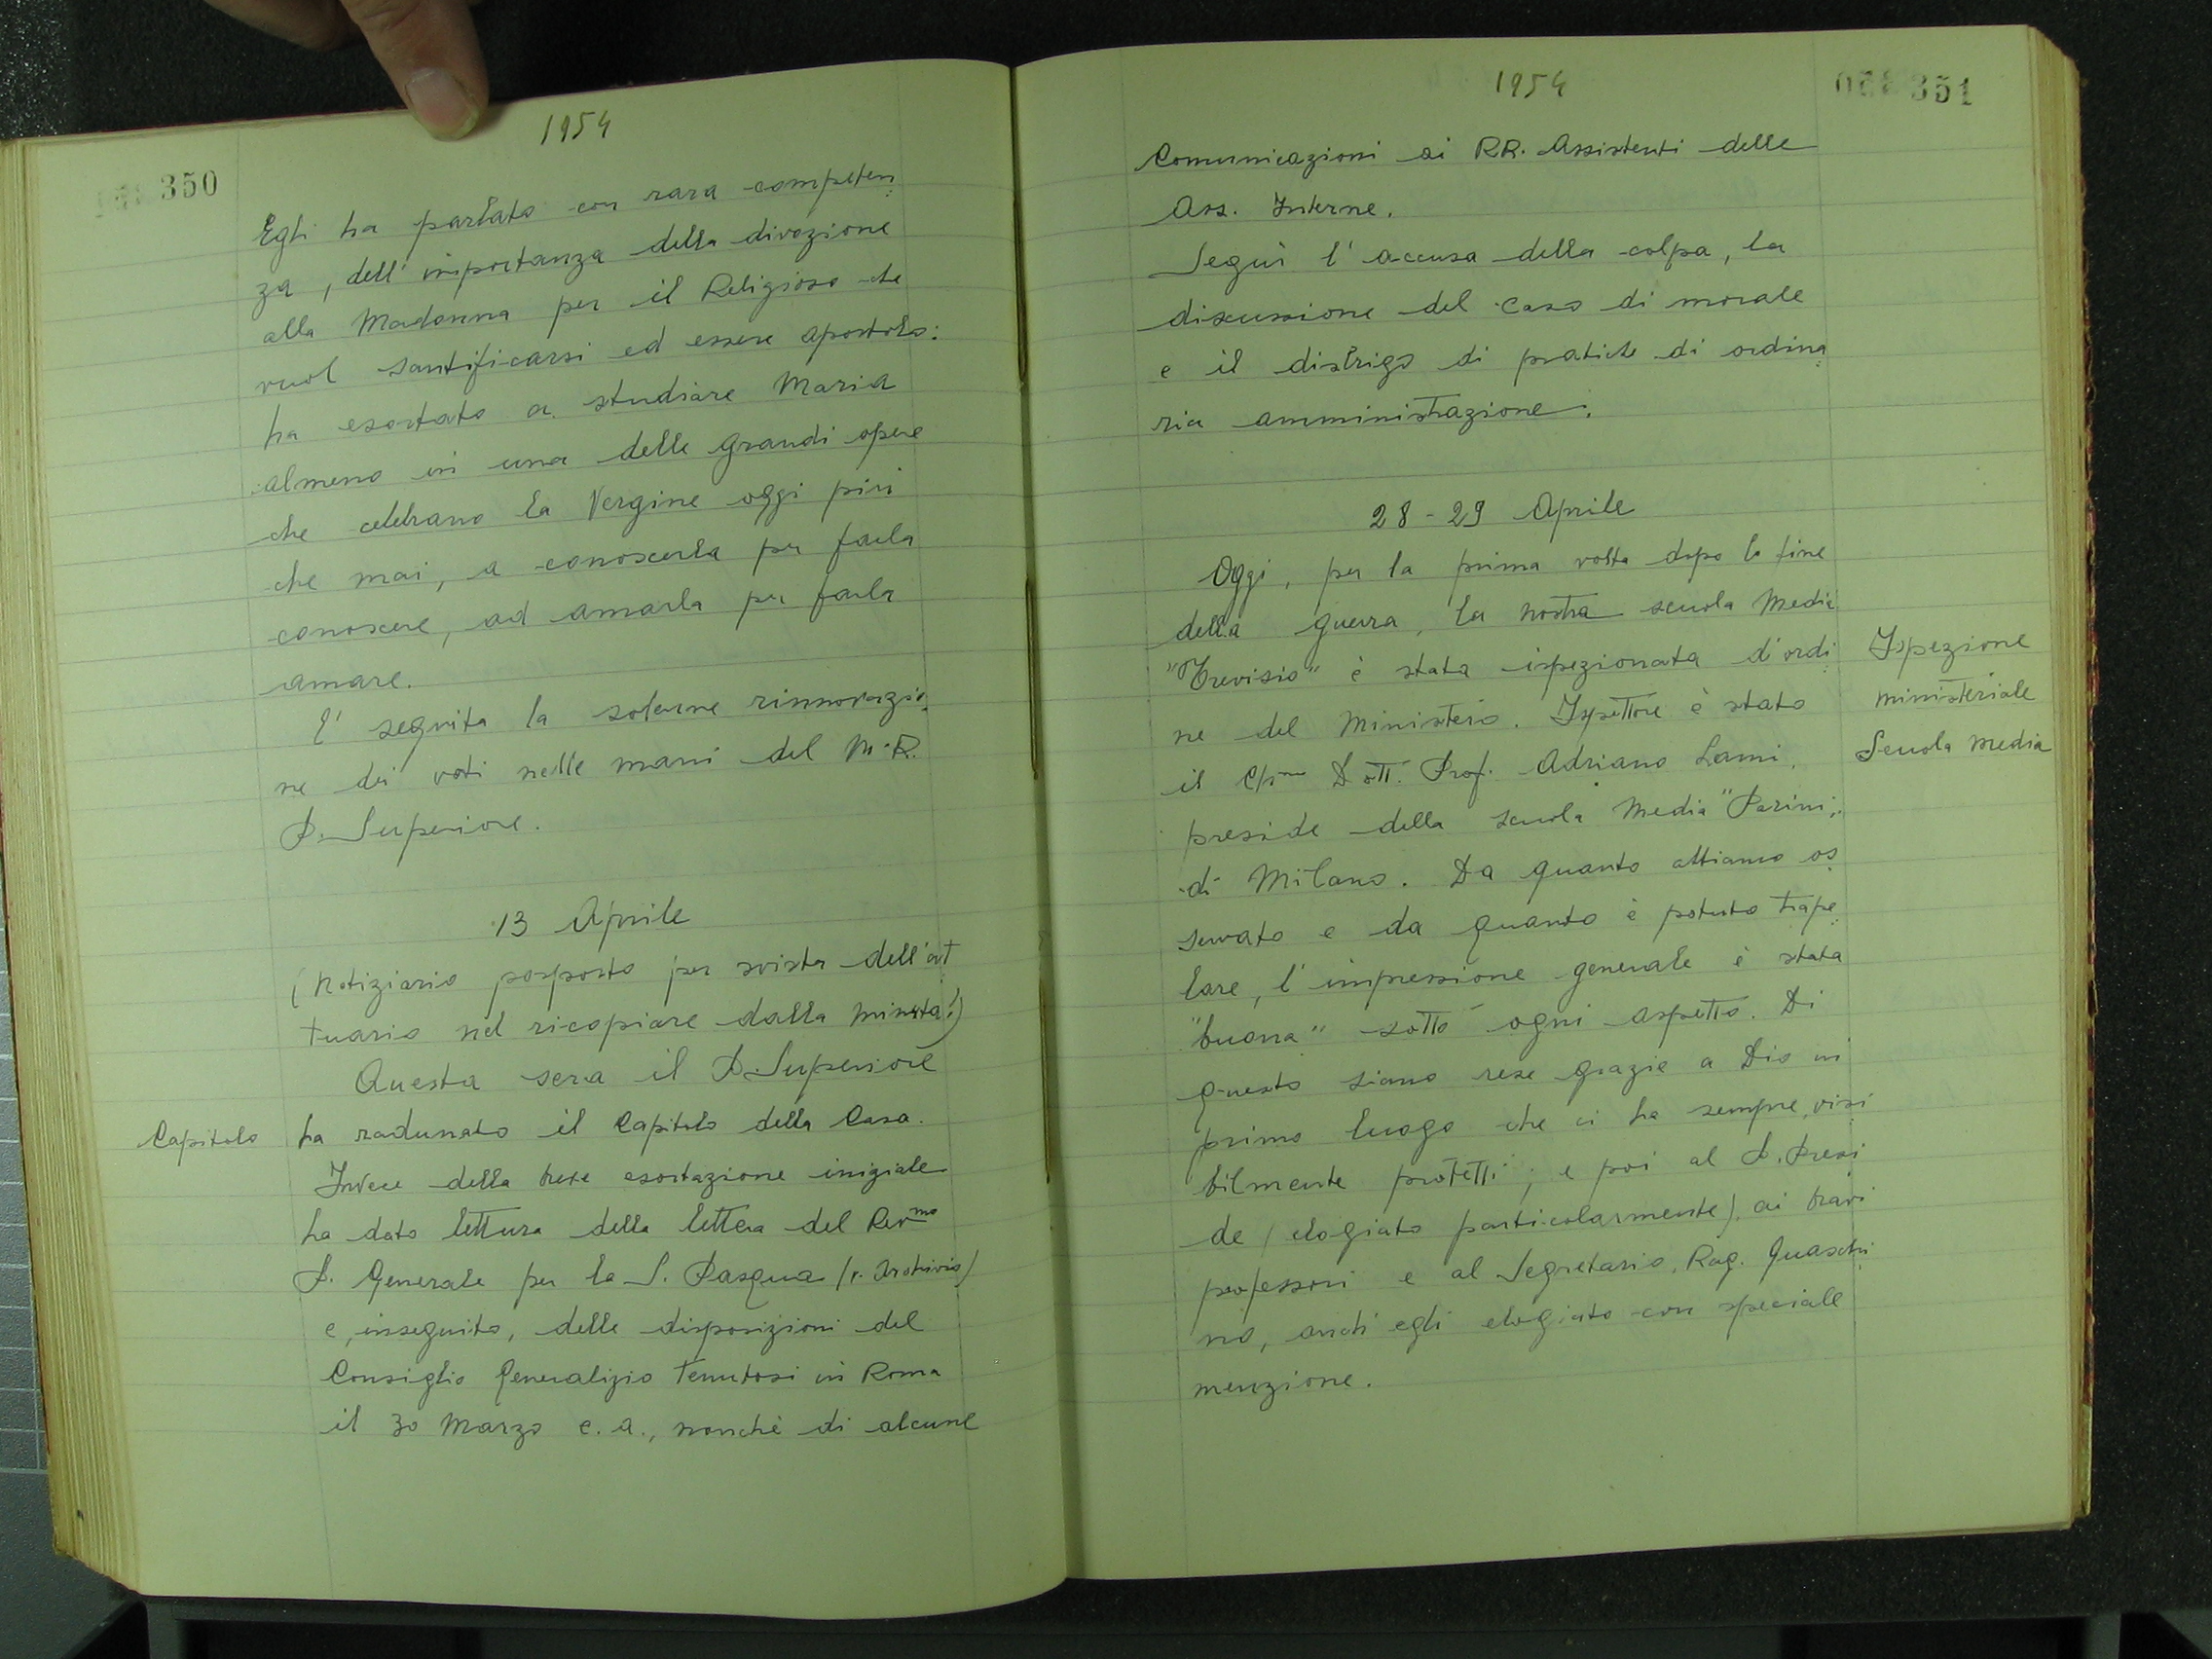 1954
350
Egli ha parlato con rara competen
za, dell'importanza della divozione
alla Madonna per il Religioso che
vuol santificarsi ed essere apostolo:
ha esortato a studiare Maria
almeno in una delle grandi opere
che celebrano la Vergine oggi più
che mai, a conoscerla per farla
conoscere, ad amarla per farla
amare.
E' seguita la solenne rinnovazio
ne dei voti nelle mani del M.R.
P. Superiore.
13 Aprile
(Notiziario posposto per svista dell'at
tuario nel ricopiare dalla minuta!)
Questa sera il P. Superiore
Capitolo
ha radunato il Capitolo della Casa.
Invece della breve esortazione iniziale
ha dato lettura della lettera del Rev.mo
P. Generale per la S. Pasqua (v. Archivio)
e, inseguito, delle disposizioni del
Consiglio Generalizio tenutosi in Roma
il 30 Marzo c.a., nonchè di alcune
1954
351
Comunicazioni ai RR. Assistenti delle
Ass. Interne.
Seguì l'accusa della colpa, la
discussione del caso di morale
e il distrigo di pratiche di ordina
ria amministrazione.
28-29 Aprile
Oggi, per la prima volta dopo la fine
della guerra, la nostra scuola Media
"Trevisio" è stata ispezionata d'ordi
ne del Ministero. Ispettore è stato
il Dott. Prof. Adriano Lami,
preside della scuola Media "Parini"
di Milano. Da quanto abbiamo os
servato e da quanto è potuto trape
lare, l'impressione generale è stata
"buona" sotto ogni aspetto. Di
questo siano rese grazie a Dio in
primo luogo che ci ha sempre visi
bilmente protetti; e poi al P. Presi
de (elogiato particolarmente), ai bravi
professori e al Segretario, Rag. Guaschi
no, anch'egli elogiato con speciale
menzione.
Ispezione
ministeriale
Scuola media